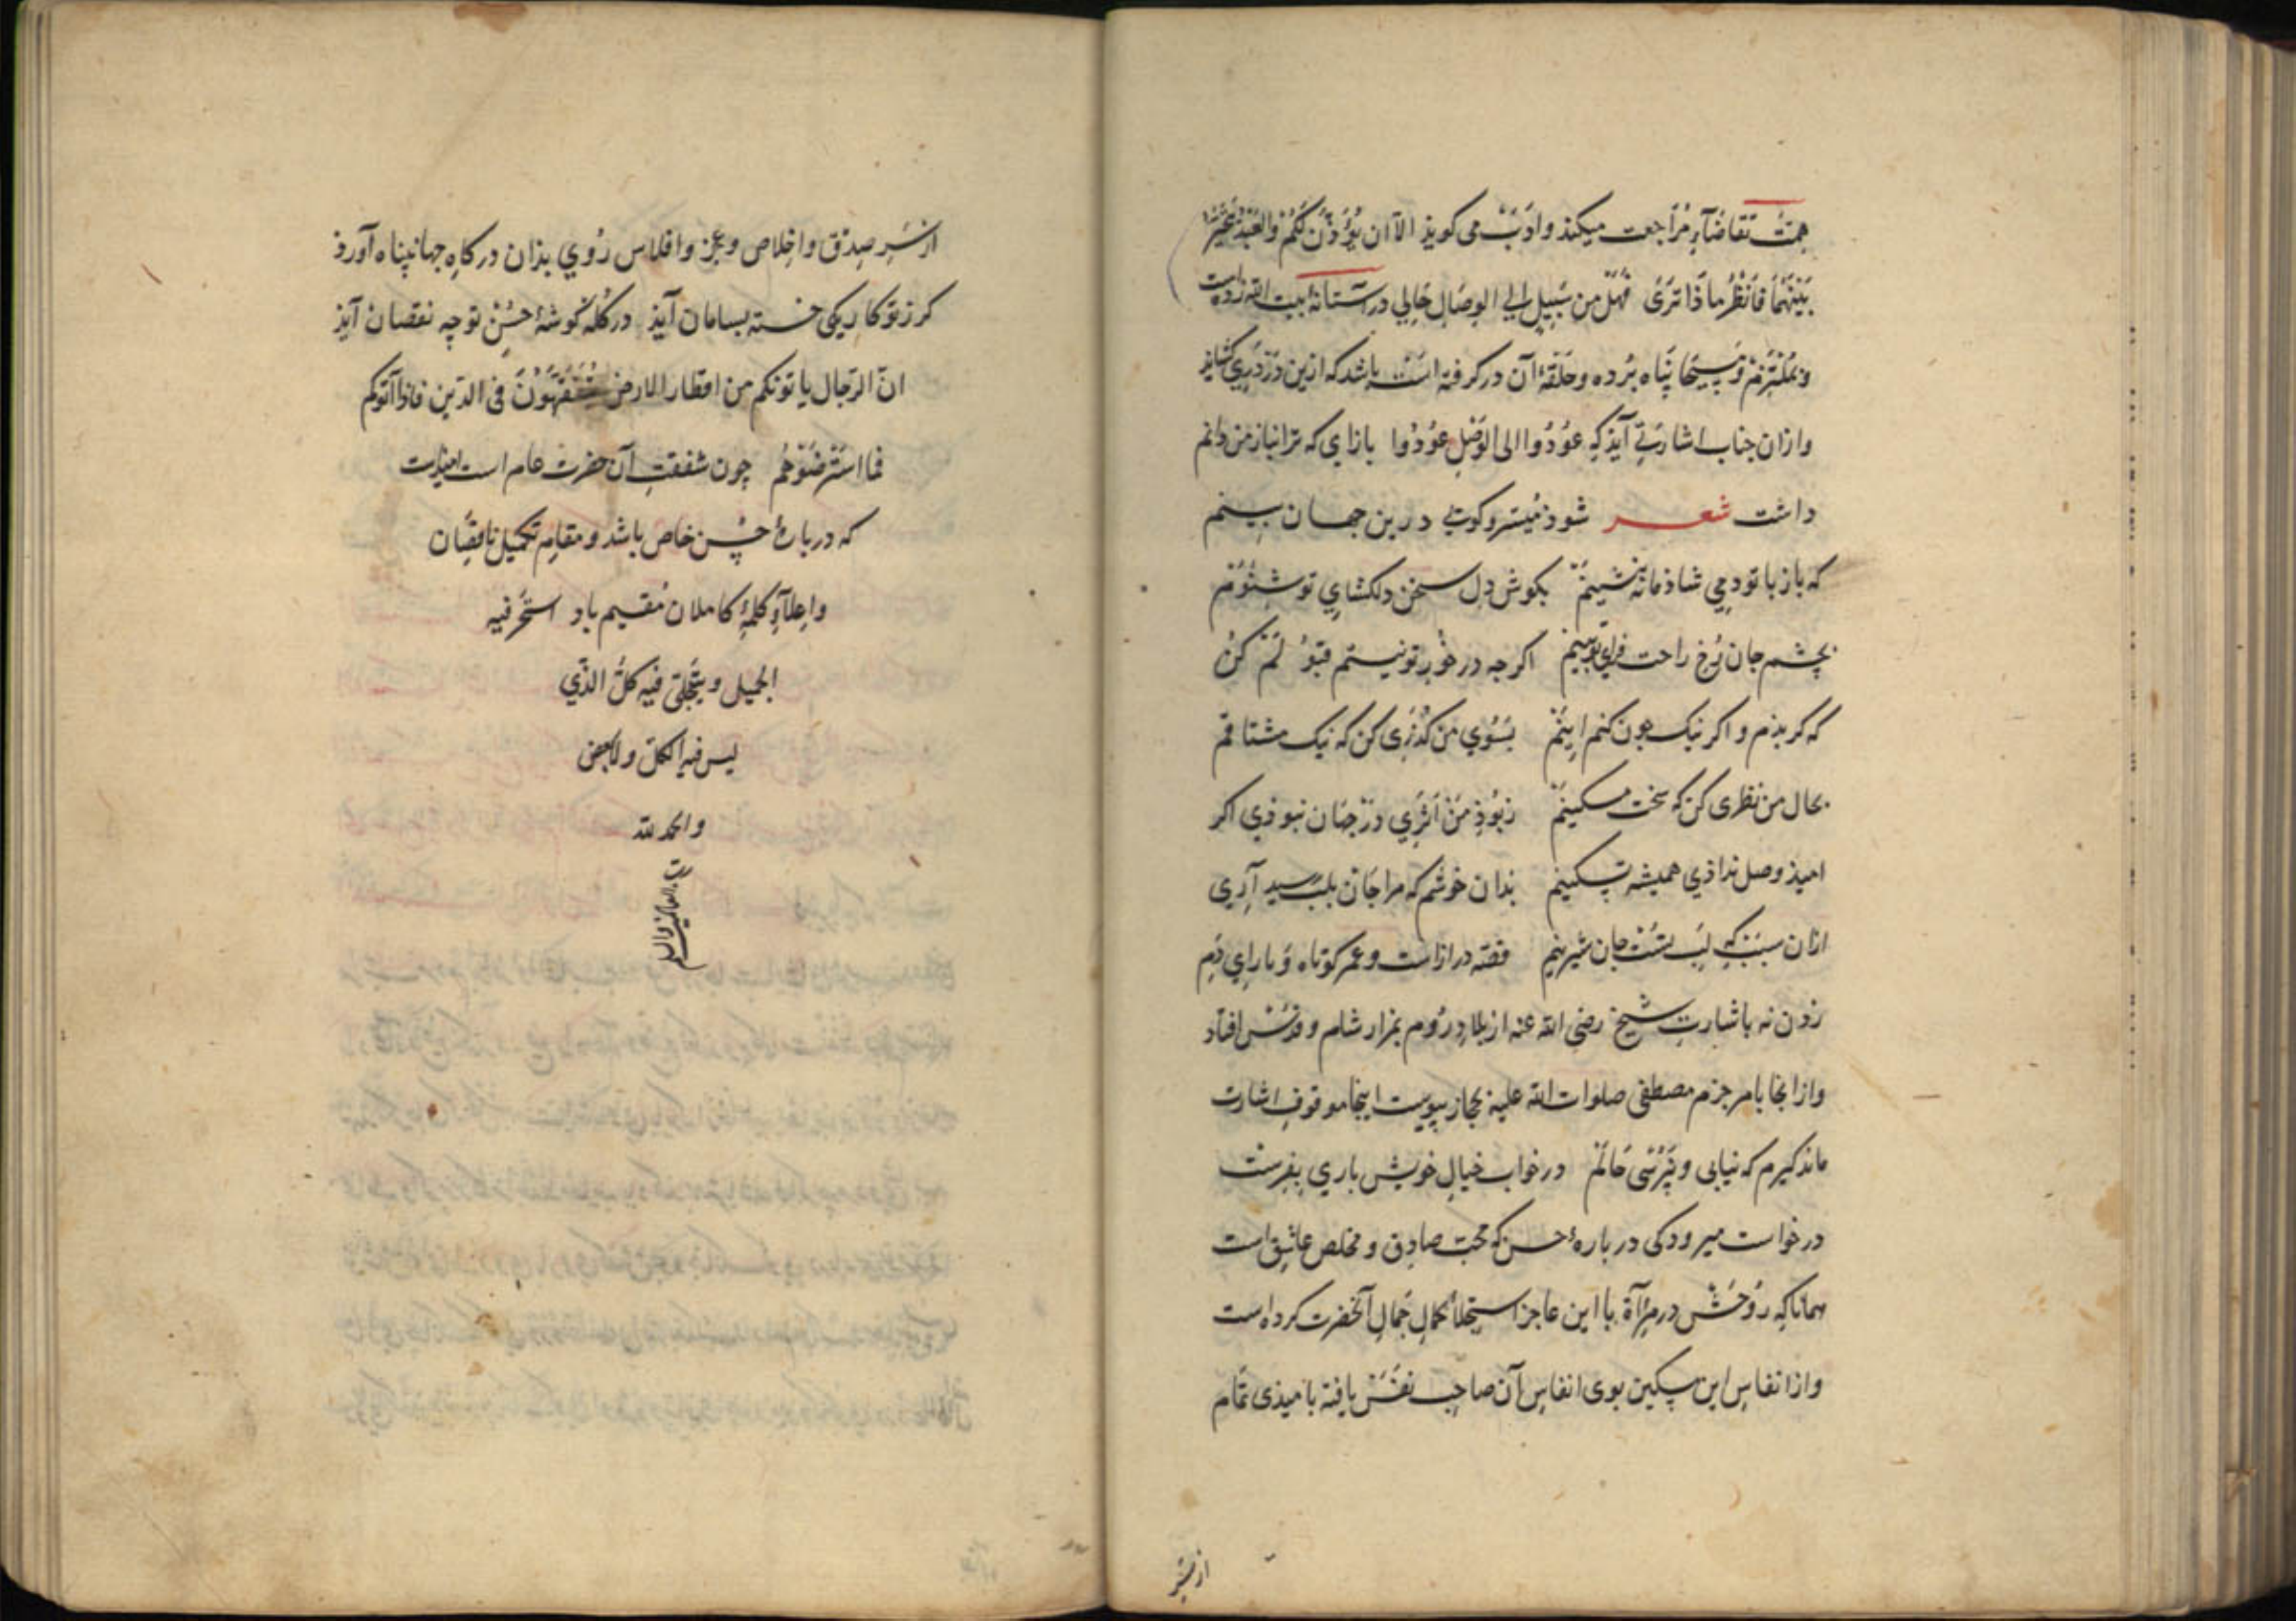 همت تقاضآءِ مراجعت میکند و ادب می کوید الآ ان یؤذن لکم والعبد بحیز
بینهما فانظر ماذا تری فهل من سبیل الی الوصال حالی در آستانهٔ بیت الله زده است
و بملتزم و مسیحا پناه برده و حلقهٔ آن در کرفته است باشد که ازین در دری کشاید
و از ان جناب اشارتی آید که عودوا الی الوصل عودوا بازای که ترا نیاز من دانم
داشت شعر شود میسر و کویی درین جهان بینم
که باز با تو دمی شادمانه بنشینم بکوش دل سخن دلکشای تو شنوم
بچشم جان رخ راحت فزای تو بینم اکرجه در خور تو نیستم قبولم کن
که کر بدم و اکر نیک جون کنم اینم بسوی من کذری کن که نیک مشتاقم
بحال من نظری کن که سخت مسکینم ز بود من اثری در جهان نبوذی اکر
امیذ وصل نداذی همیشه تسکینم بدان خوشم که مرا جان بلب رسید آری
ازان سبب که لب تست جان شیرینم قصه دراز است و عمر کوتاه و یارای دم
زدن نه باشارت شیخ رضی الله عنه از بلاد روم بمزار شام و قدس افتاد
و از انجا بامر جزم مصطفی صلوات الله علیه بحجاز پیوست اینجا موقوف اشارت
ماند کیرم که نیایی و نپرسی حالم در خواب خیال خویش باری بفرست
درخواست میرود کی دربارهٔ حسن که محب صادق و مخلص عاشق است
همانا که روحش در مرآة با این عاجز استجلاءِ کمال جمال آنحضرت کرده است
و از انفاس این مسکین بوی انفاس آن صاحب نفس یافته بامیذی تمام
از سر
از سر صدق و اخلاص و عجز و افلاس روی بذان درکاه جهانپناه آورد
کر ز تو کار یکی خسته بسامان آیذ در کله کوشهٔ حسن تو چه نقصان آیذ
ان الرجال یاتونکم من اقطار الارض یتفقهون فی الدین فاذا اتوکم
فاسترضوهم چون شفقت آن حضرت عام است امیذست
که دربارهٔ حسن خاص باشد و مقام تکمیل ناقصان
و اعلاءِ کلمهٔ کاملان مقیم باد فیه
الجمیل و یتجلی فیه کل الذی
لیس فیه الکل و لا بعض
و الحمد لله
رب العالمین